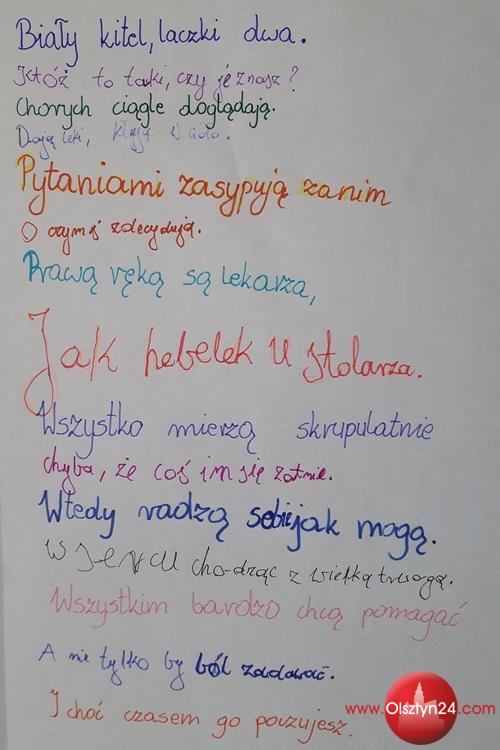 Biały kitel, laczki dwa.
Któż to taki, czy je znasz?
Chorych ciągle doglądają.
Dają leki, kłują w ciało.
Pytaniami zasypują zanim
O czymś zdecydują.
Prawą ręką są lekarza,
Jak hebelek u stolarza.
Wszystko mierzą skrupulatnie
chyba, że coś im się zatnie.
Wtedy radzą sobie jak mogą.
W sercu chodząc z wielką trwogą.
Wszystkim bardzo chcą pomagać
A nie tylko by ból zadawać.
I choć czasem go poczujesz.
www.Olsztyn24.com